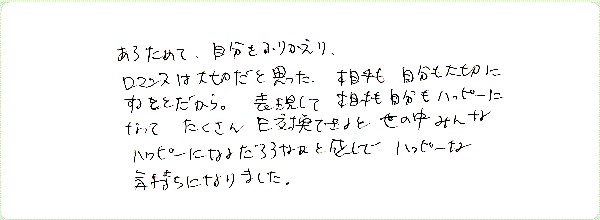 あらためて、自分をふりかえり、
ロマンスは大切だと思った。相手も自分も大切に
することだから。表現して相手も自分もハッピーに
なって たくさん 交換できると 世の中みんな
ハッピーになるだろうなぁと感じて ハッピーな
気持ちになりました。